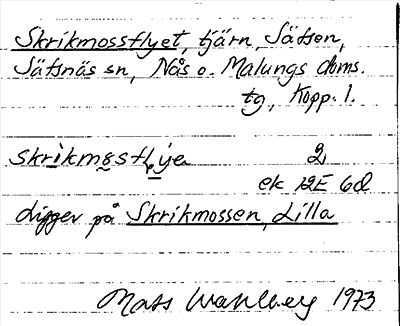 Skrikmossflyet, tjärn, Säfsen,
Säfsnäs sn, Nås o. Malungs doms.
tg, Kopp. l.
skrìkmåsflyje 2
ek 12E 6d
ligger på Skrikmossen, Lilla
Mats Wahlberg 1973